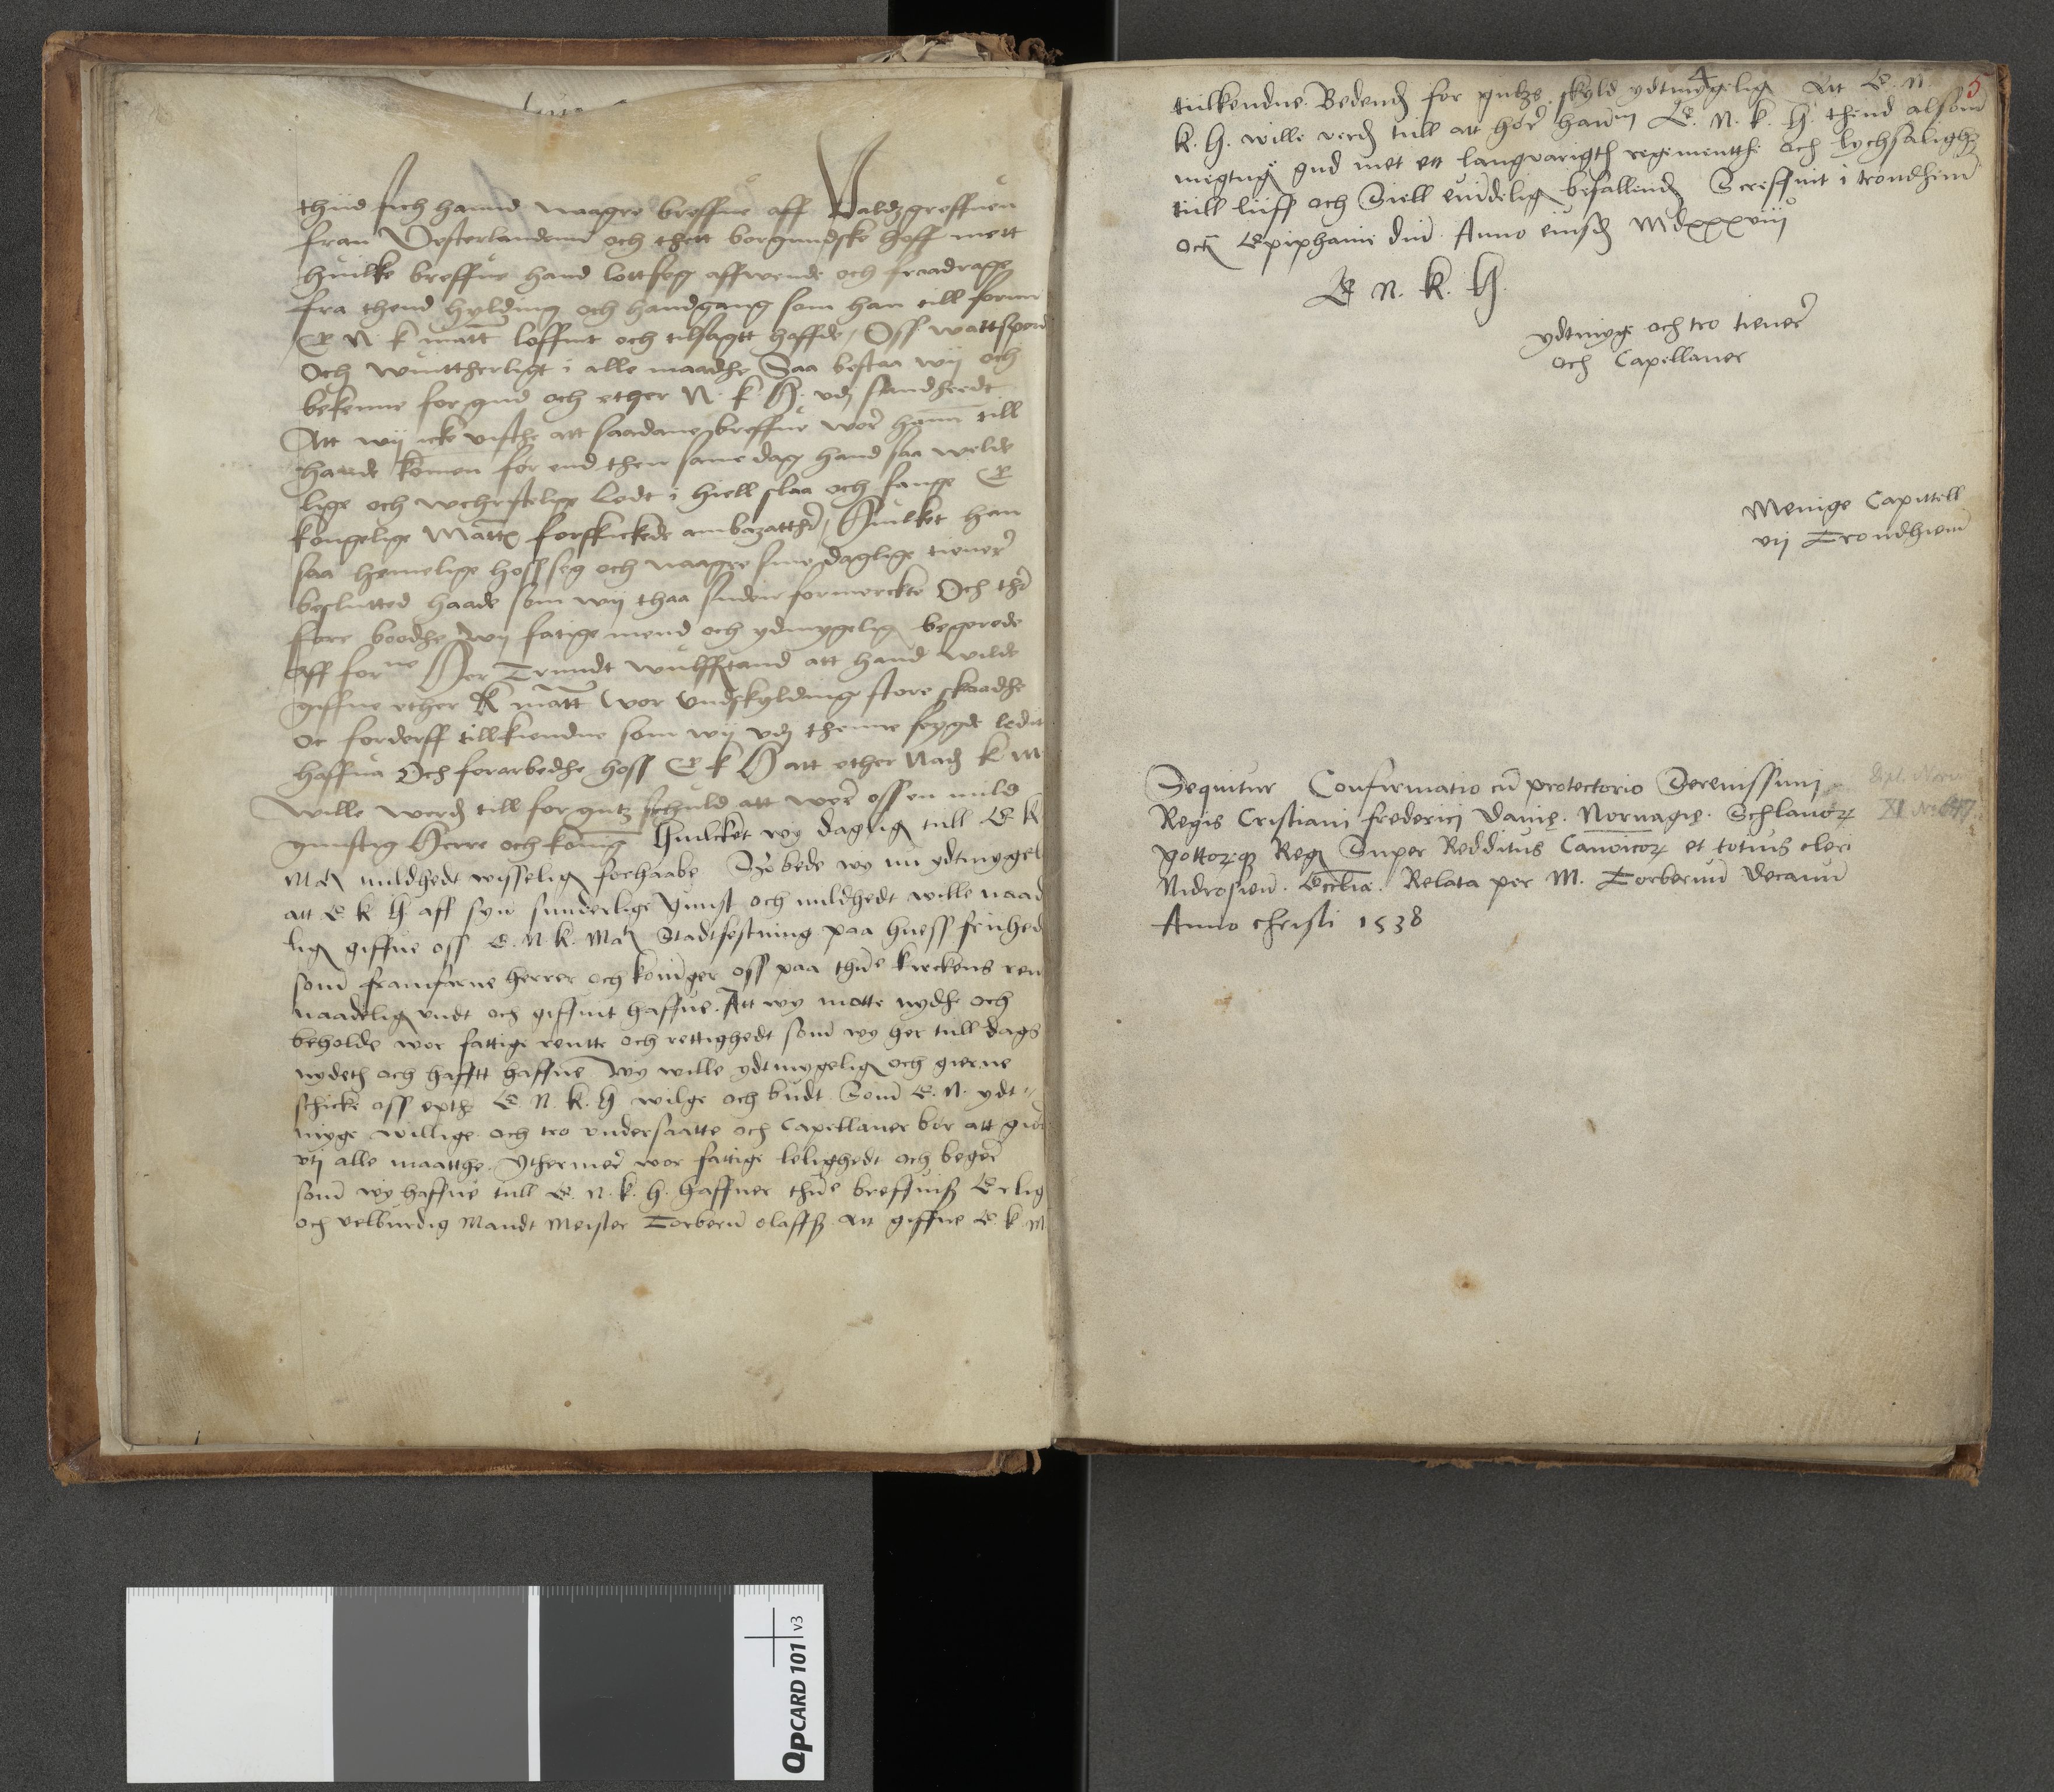 thiid fich hannd naagre breffue aff Paldzgreffuen
fran Vesterlandenn och thett borgundske hoff mett
huilke breffue hand lottseg affwende och fraadrage
fra thend hylding och handgang som han till fornn
E N k matt loffuit och tilsagtt haffde / Oss wattsporde
Och wuittherligt i alle maadhe Saa bestaa wij och
bekenne for gud och ether N. k. H. vdj sandheedt
Att wij icke viste att saadane breffue wor hannn till
hande komen for end then same dag hand saa welde
lige och wchristelige Lodt i hiell slaa och fange E
kongelige Matts forskickede ambazatther / Huilket han
saa hemelige hoss seg och naagre sine daglige tiener
beslutted haade som wij thaa siden formerckte Och ther
fore boodhe wij fatige mend och ydmygelig begerede
Aff forne Her Trundt wulffstand att hand wilde
giffue ether K matt wor vndskylding store skaadhe
oc forderff tillkiendne som wij vdj thenne feygde lediit
haffua Och forarbedhe hoss E k H att ether Nadz k M
wille werdz till for gutz schuld att wer oss en mild
gunstig Herre och konnig Huilcket wy daglig till E k
Matz mildhedt wisselig forhaabe Szo bede wy nu ydtmygel
att E k H aff syn sunderlige gunst och mildhedt wille naad
lig giffue oss E. N. k. Matz Stadfestning paa huess friihed
som framfarne herrer och koninger oss paa thne kirckens ren
naadelig vndt och giffuit haffue. Att wy motte nydhe och
beholde wor fattige rentte och rettighedt som wy her till dags
nydeth och hafftt haffue Wy wille ydtmygelig och gierne
schicke oss epth E. N. k. H wilge och budt Som E. N. ydt
myge willige och tro vndersaatte och Capellaner bor att giör
vtj alle maatthe. Ythermer wor fattige lelighedt och beger
som wy haffue till E. N. k. H. haffuer thne breffuisz Erlig
och velburdig Mandt Meister Torbern olaffsz att giffue E. k M
4
5
tiilkendne. Bedendz for gudzs skyld ydtmygelig Att E. N
k. H. wille verdz till att hör hanum E. N. k. H. thend alsom
megtug gud met ett langvarigth regementthe och lychsaligh
till liiff och Siell euindelig befallendz Screffuit i trondhim
octa Epiphanie dni Anno eiusdz Mdxxxviijo
E N. k. H.
ydtmyge och tro tiener
och Capellaner
Menige Capittell
vij Trondhiem
Sequitur Confirmatio cu protectorio Serenissimi
Regis Cristiani frederici Danię. Norvagię. Schlauorz
gottorzqz Reg Super Redditus Canoicorz et totius cleri
Nidrosien. Ecclia. Relata per M. Torbernu Decanu
Anno christi 1538
Dipl. Norv
XI. No 647.
QPCARD 101 v3